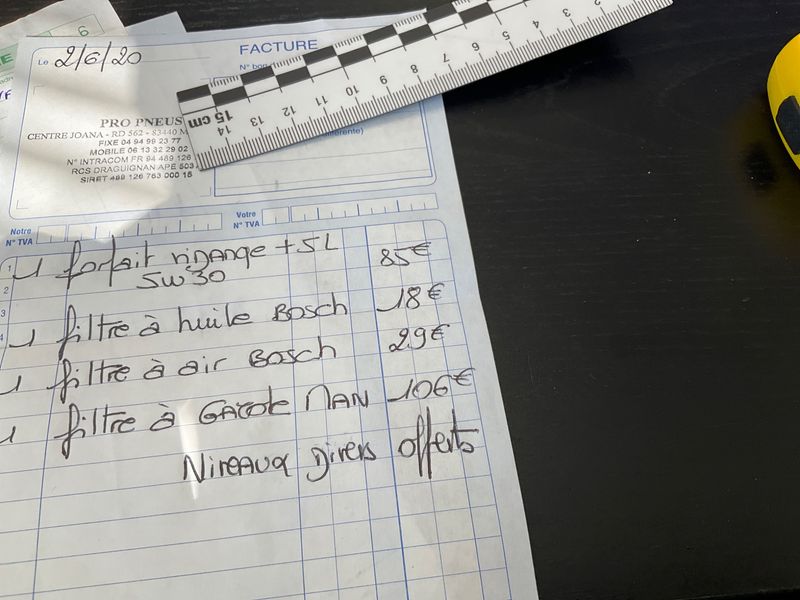 6
Le 2/6/20
FACTURE
N° bon
PRO PNEUS
CENTRE JOANA - RD 562 - 83440 M
FIXE 04 94 99 23 77
MOBILE 06 13 32 29 02
N° INTRACOM FR 94 489 126
RCS DRAGUIGNAN APE 503
SIRET 489 126 763 000 15
15 cm 14 13 12 11 10 9 8 7 6 5 4 3 2
Notre
N° TVA
Votre
N° TVA
1 1 forfait vidange + 5L 85€
2 5W30
3 1 filtre à huile BOSCH 18€
4 1 filtre à air BOSCH 29€
1 filtre à GAZOLE MAN 106€
NIVEAUX DIVERS offerts